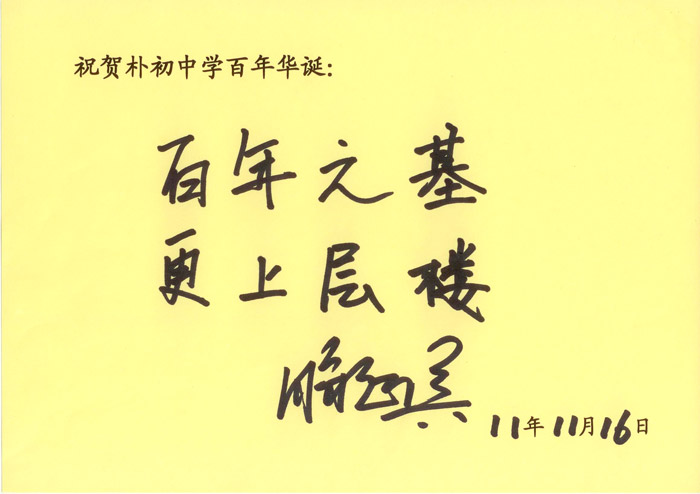 祝贺朴初中学百年华诞:
百年元基
更上层楼
11年11月16日